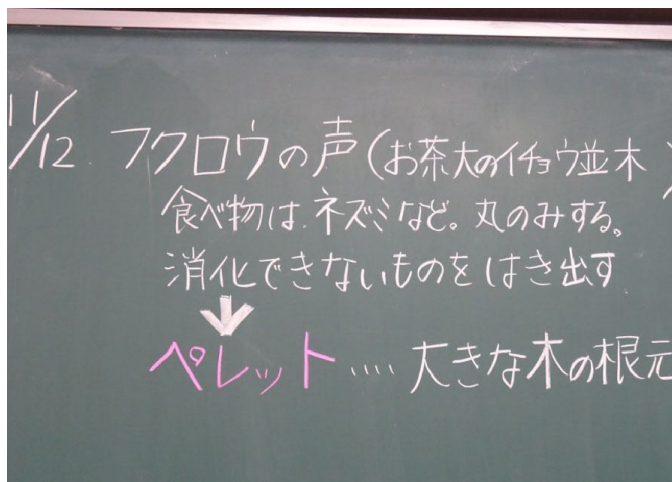 11/12 フクロウの声(お茶大のイチョウ並木)
食べ物は.ネズミなど。丸のみする。
消化できないものをはき出す
ペレット .... 大きな木の根元